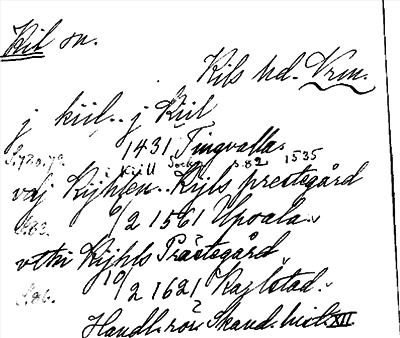 Kil sn.
Kils hd. Vrm.
j kiil.. j Kiil
1431 Tingvalla.
S. 72 o. 73. i Kiill Socken s. 82 1535
vdj Kijhlen.. Kijls prestegård
S. 83. 6/2 1561 Upsala.
vthi Kijhls Prästegård
S. 86. 10/2 1621 Karlstad.
Handl. rör. Skand. hist. XII